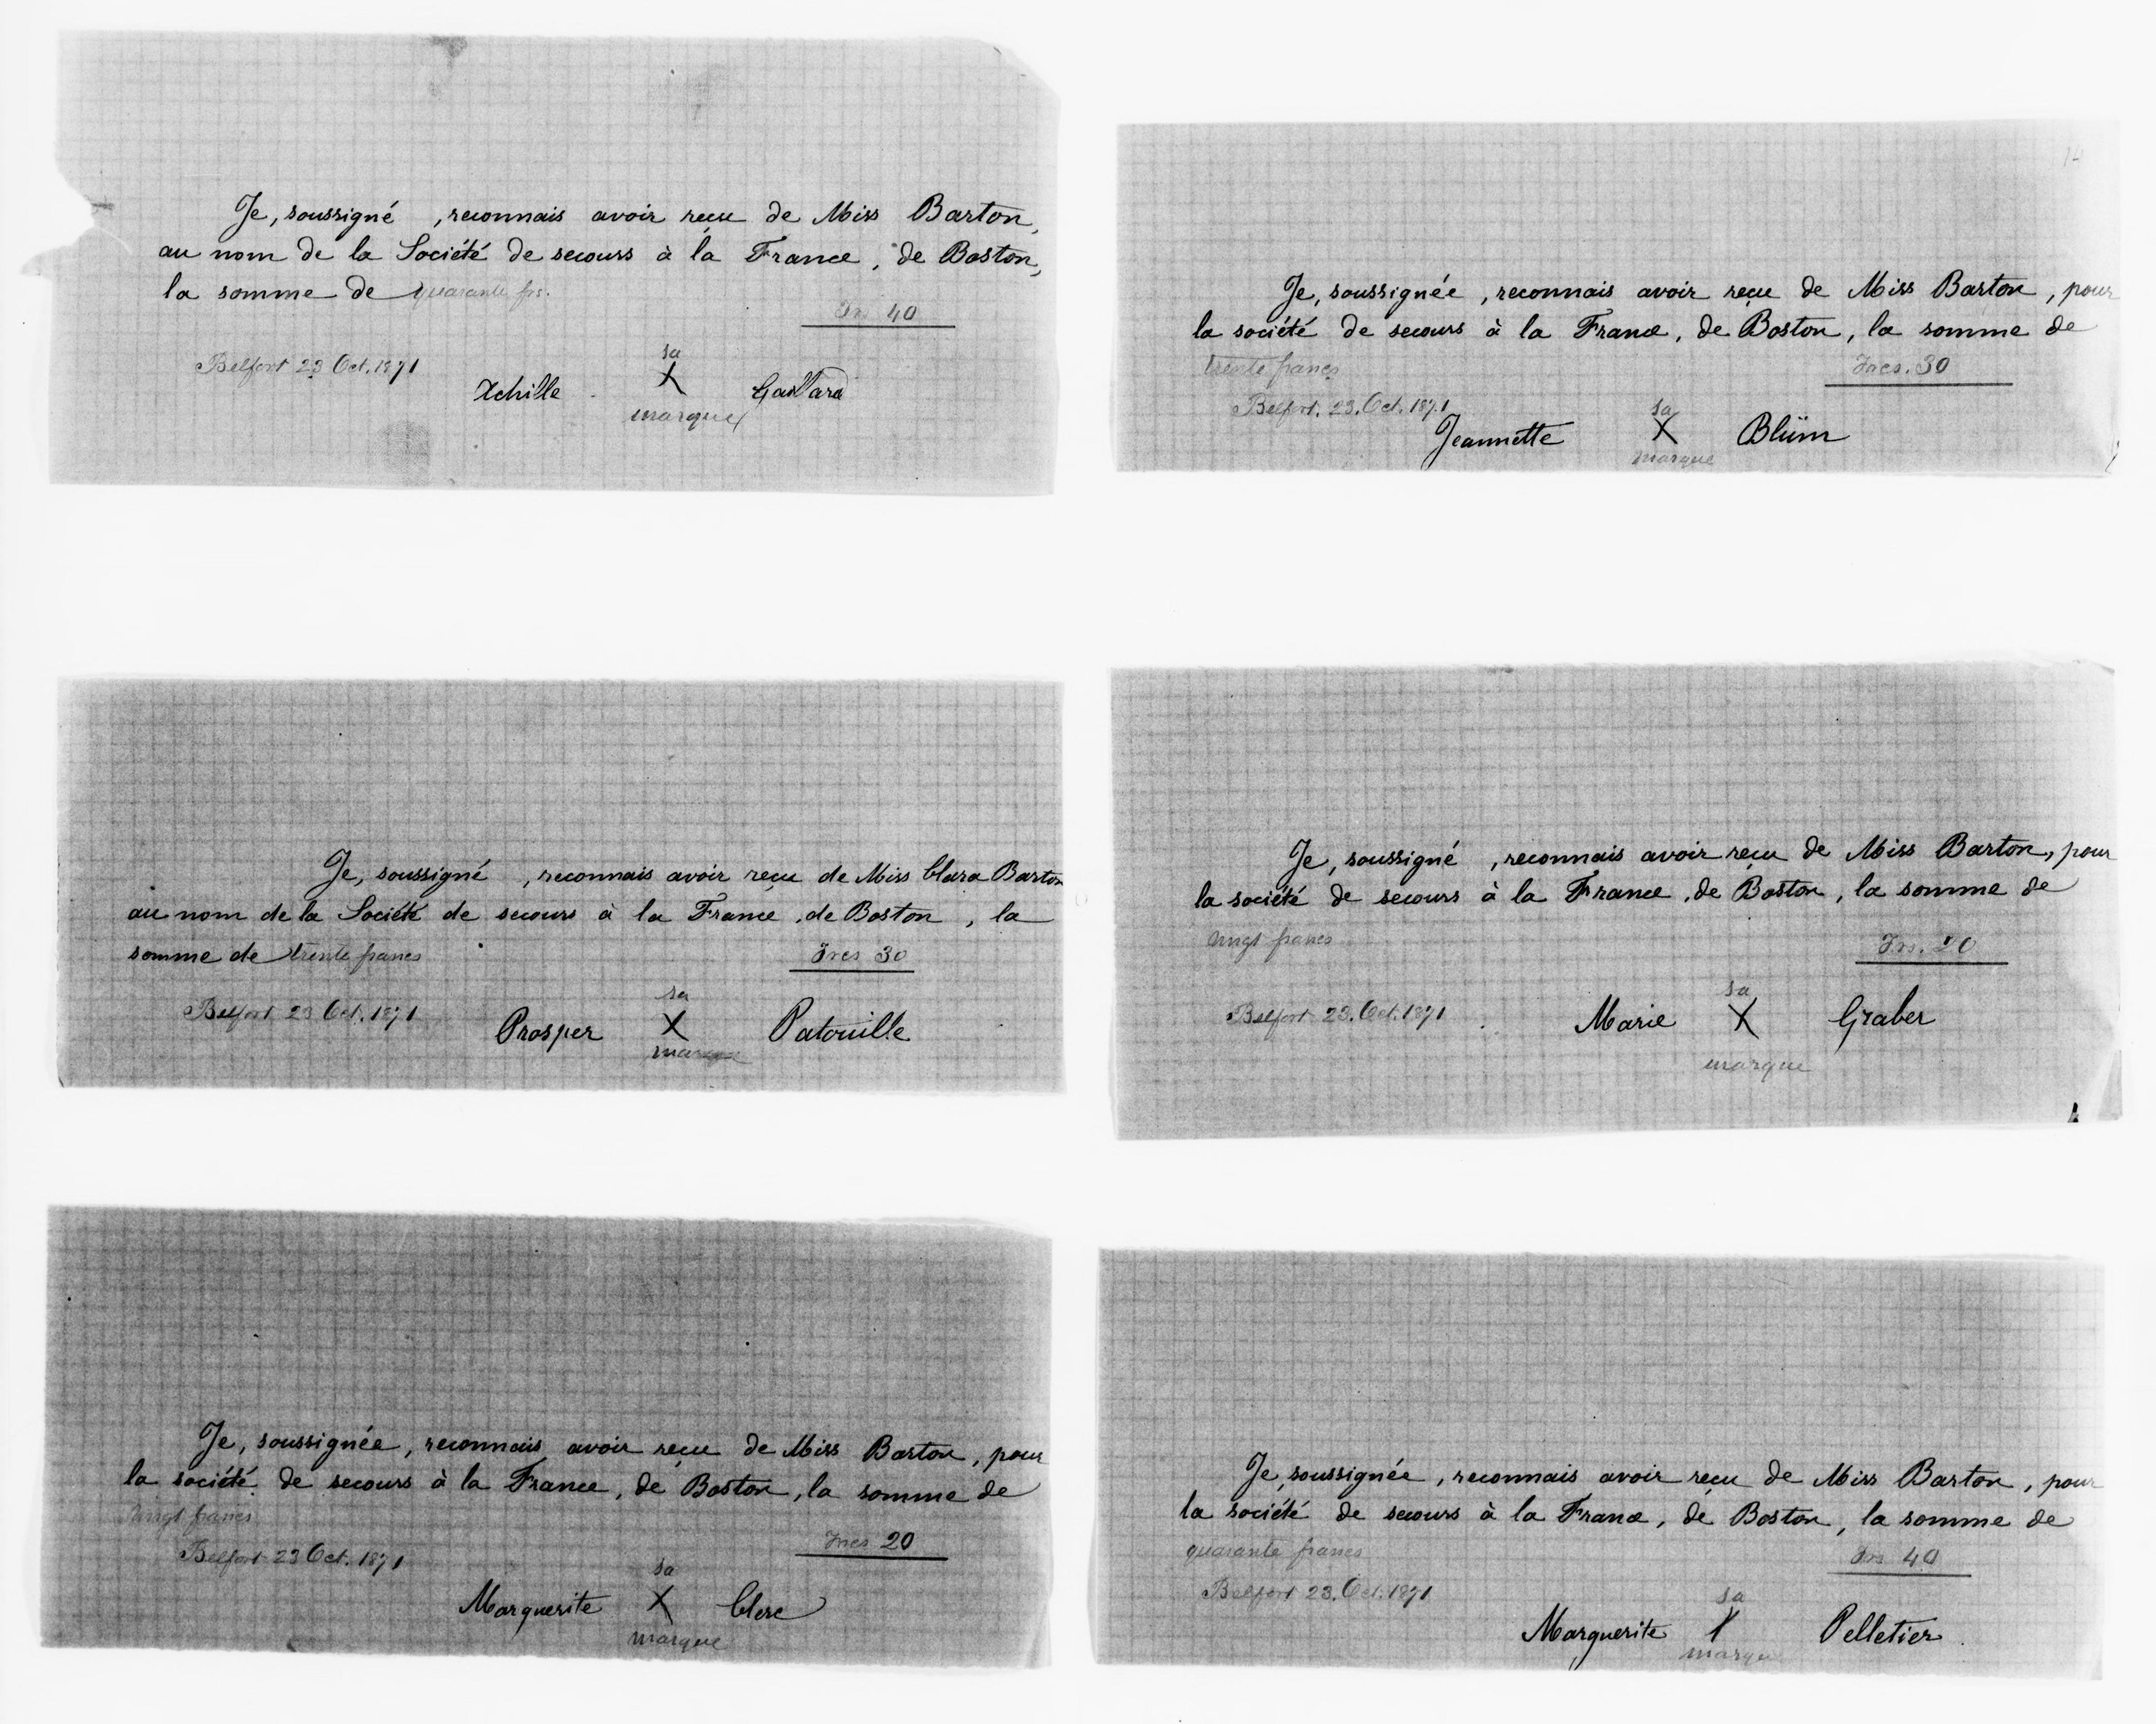 Je, soussigné , reconnais avoir reçu de Miss Barton,
au nom de la Société de secours à la France, de Boston,
la somme de quarante frs.
Frs 40
Belfort 23 Oct. 1871
sa
Achille X Gaillard
marque
14
Je, soussignée, reconnais avoir reçu de Miss Barton, pour
la société de secours à la France, de Boston, la somme de
trente francs
Frcs. 30
Belfort. 23. Oct. 1871
sa
Jeannette X Blüm
marque
Je, soussigné , reconnais avoir reçu de Miss Clara Barton
au nom de la Société de secours à la France, de Boston, la
somme de trente francs
Frcs 30
Belfort 23 Oct. 1871
sa
Prosper X Patouille
marque
Je, soussigné , reconnais avoir reçu de Miss Barton, pour
la société de secours à la France, de Boston, la somme de
vingt francs
Frs. 20
Belfort 23. Oct. 1871
sa
Marie X Graber
marque
Je, soussignée, reconnais avoir reçu de Miss Barton, pour
la société de secours à la France, de Boston, la somme de
vingt francs
Frcs 20
Belfort 23 Oct. 1871
sa
Marguerite X Clerc
marque
Je, soussignée, reconnais avoir reçu de Miss Barton, pour
la société de secours à la France, de Boston, la somme de
quarante francs
Frs 40
Belfort 23. Oct. 1871
sa
Marguerite X Pelletier
marque